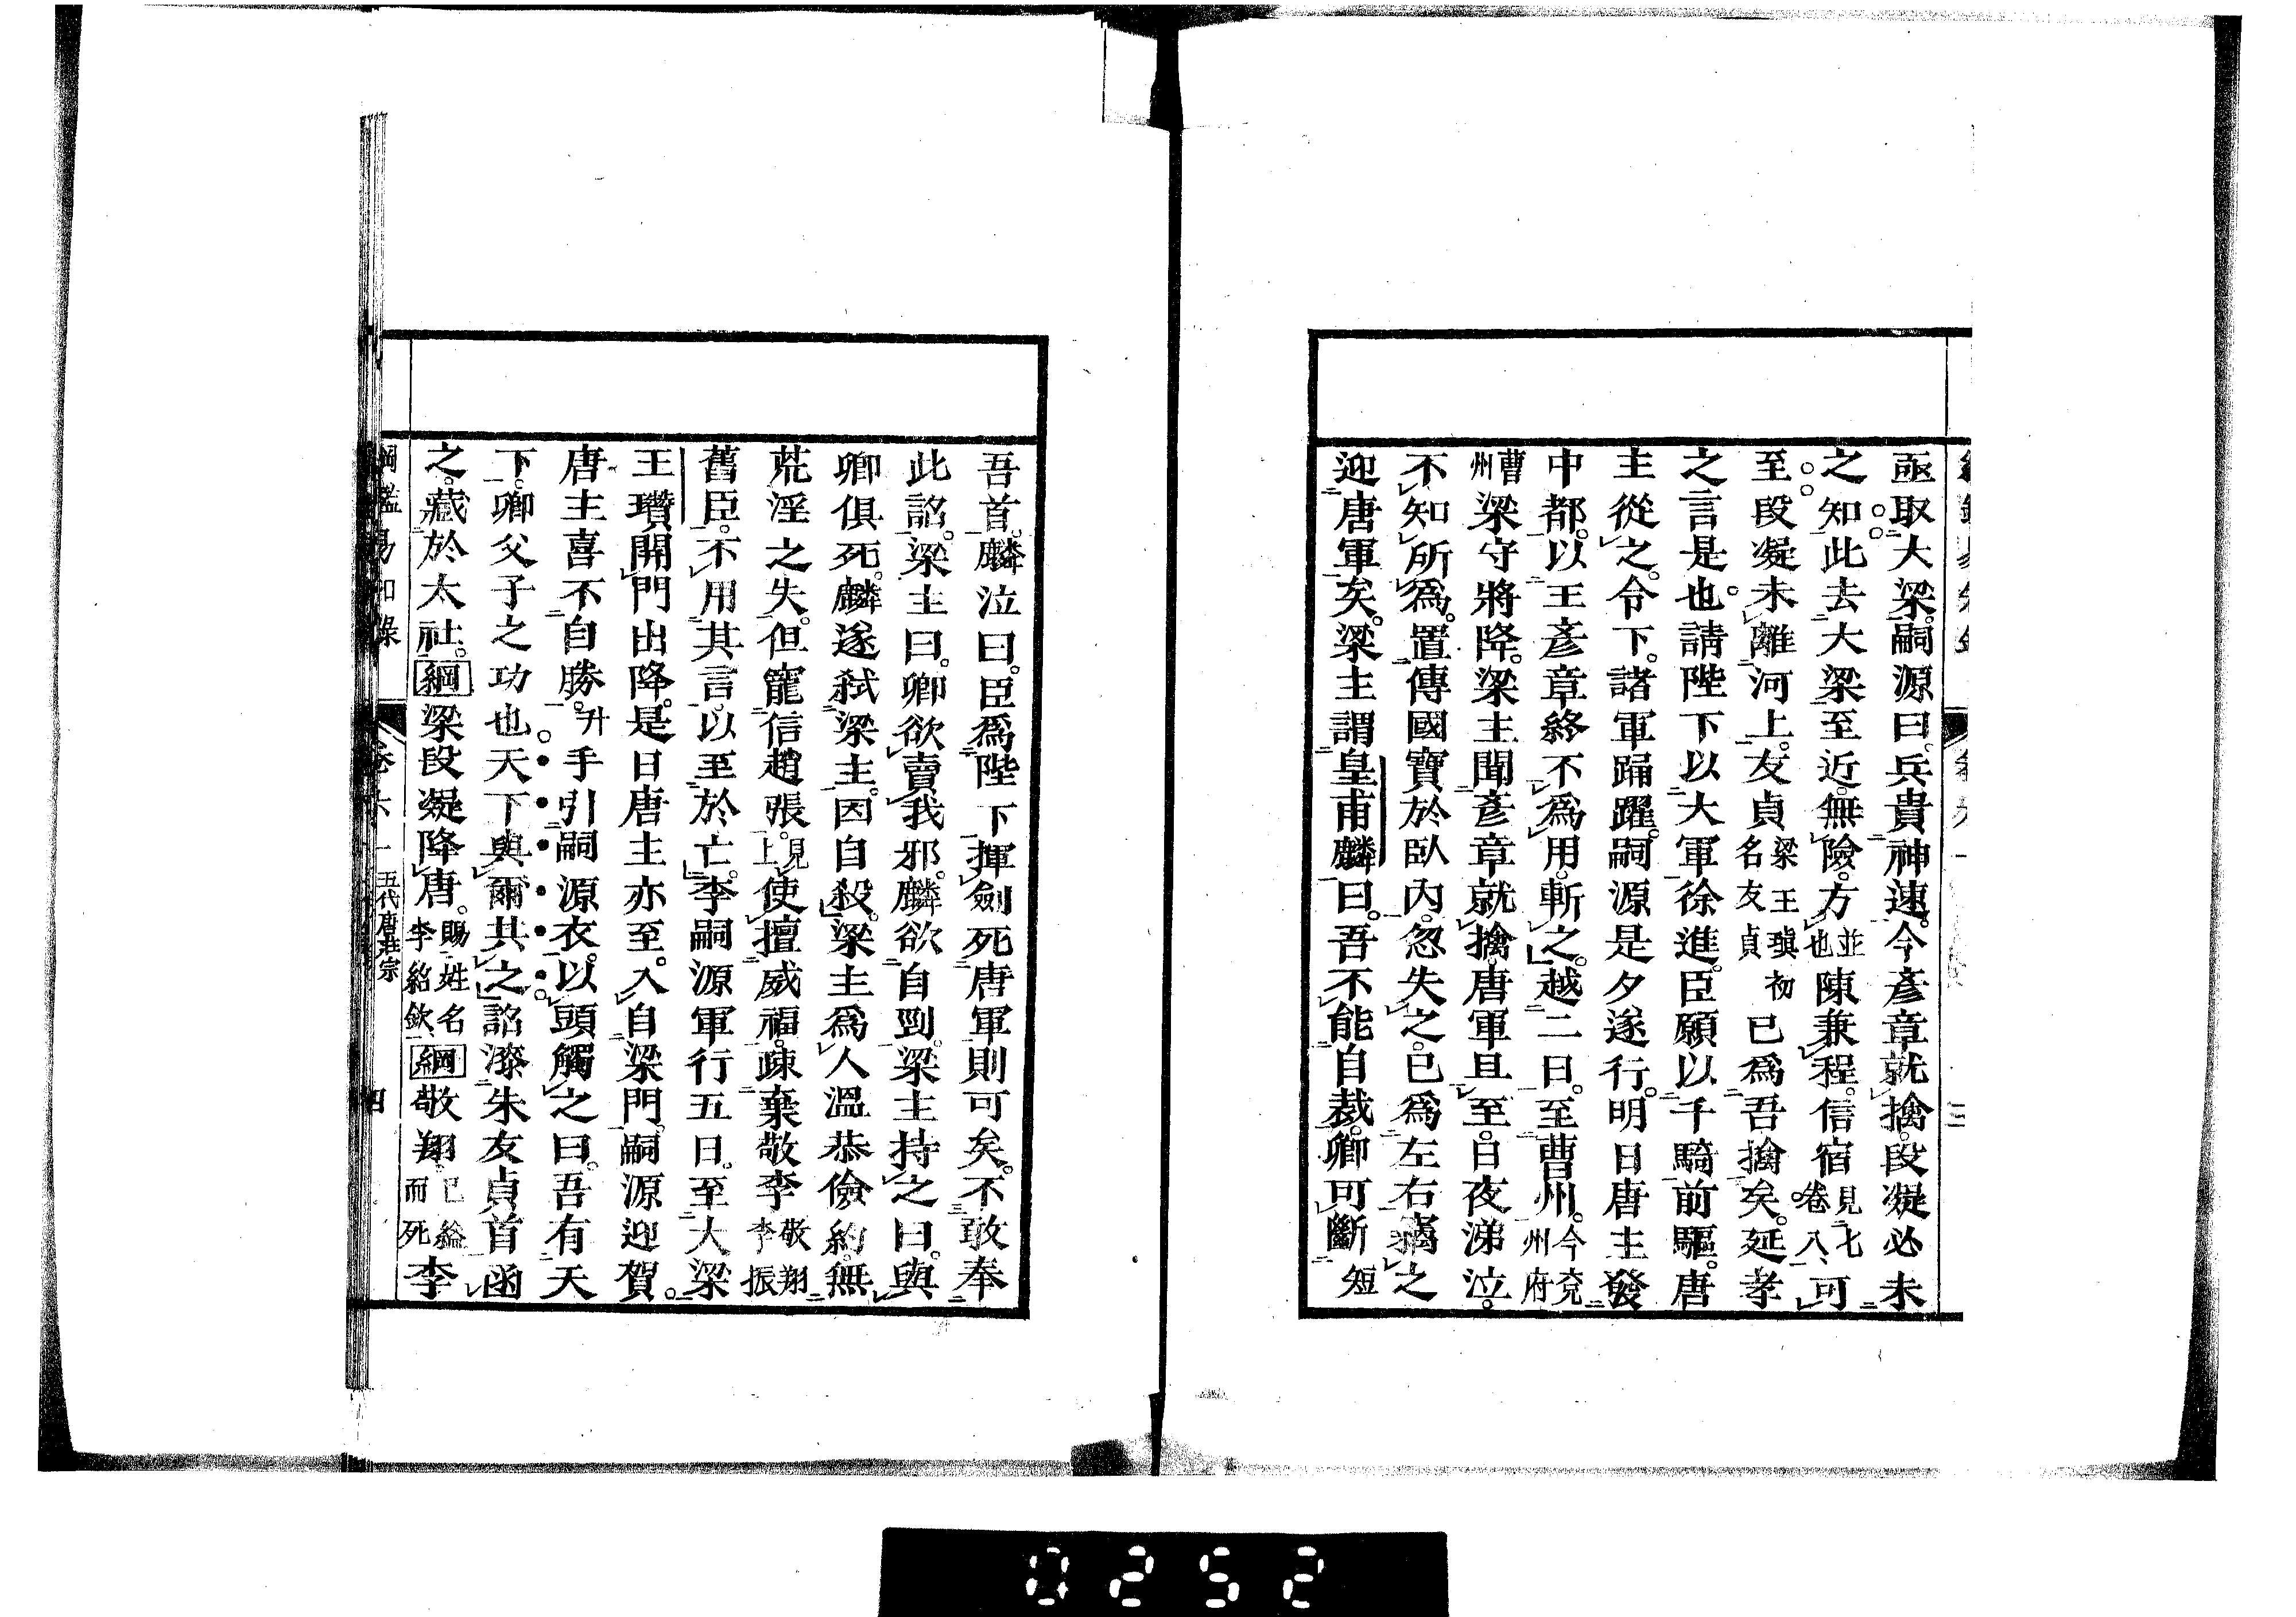 亟取大梁。嗣源曰。兵貴神速。今彥章就擒。段凝必未
之知。此去大梁至近。無險。方並也陳兼程。信宿見七卷八、可
至。段凝未離河上。友貞梁王瑱初名友貞已爲吾擒矣。延孝
之言是也。請陛下以大軍徐進。臣願以千騎前驅。唐
主從之。令下。諸軍踊躍。嗣源是夕遂行。明日唐主發
中都。以王彥章終不爲用。斬之。越二日。至曹州。今兗州府
曹州梁守將降。梁主聞彥章就擒。唐軍且至。日夜涕泣。
不知所爲。置傳國寶於臥內。忽失之。已爲左右竊之
迎唐軍矣。梁主謂皇甫麟曰。吾不能自裁。卿可斷短
吾首。麟泣曰。臣爲陛下揮劍死唐軍則可矣。不敢奉
此詔。梁主曰。卿欲賣我邪。麟欲自剄。梁主持之曰。與
卿俱死。麟遂弒梁主。因自殺。梁主爲人溫恭儉約。無
荒淫之失。但寵信趙張。見上使擅威福。疎棄敬李敬翔李振
舊臣。不用其言。以至於亡。李嗣源軍行五日。至大梁
王瓚開門出降。是日唐主亦至。入自梁門。嗣源迎賀。
唐主喜不自勝。升手引嗣源衣。以頭觸之曰。吾有天
下。卿父子之功也。天下與爾共之。詔漆朱友貞首函
之。藏於太社。綱梁段凝降唐。賜姓名李紹欽、綱敬翔已縊而死李
綱鑑易知錄 卷六十一 五代唐莊宗 四